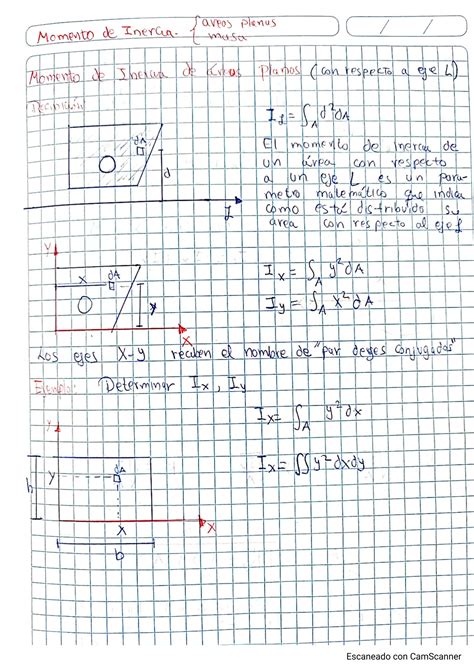 Momento de Inercia. { areas planas
masa
Momento de Inercia de Areas Planas (con respecto a eje L)
Definición
I_L = ∫_A d² dA
El momento de inercia de
un área con respecto
a un eje L es un para-
metro matemático que indica
como está distribuido su
área con respecto al eje L
dA
d
L
y
x dA
y
x
I_x = ∫_A y² dA
I_y = ∫_A x² dA
Los ejes X-y reciben el nombre de "par de ejes conjugados"
Ejemplo: Determinar I_x, I_y
I_x = ∫_A y² dx
I_x = ∫∫ y² dx dy
y
h y dA
x
x
b
Escaneado con CamScanner